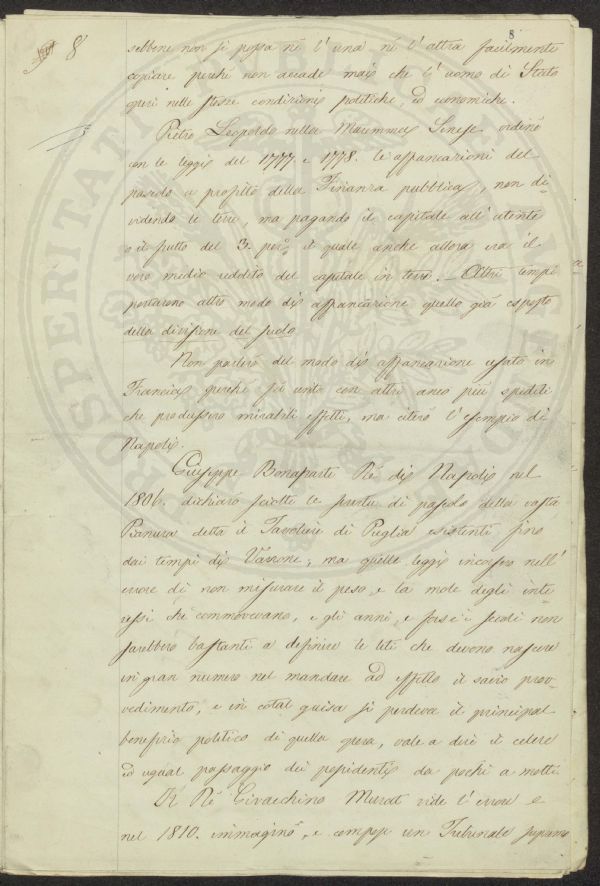 8
8
sebbene non si possa nè l'una nè l'altra facilmente
copiare perchè non accade mai che l'uomo di Stato
operi nelle stesse condizioni politiche, ed economiche.
Pietro Leopoldo nella Maremma Senese ordinò
con le leggi del 1777. e 1778. le affrancazioni del
pascolo a profitto della Finanza pubblica, non di-
videndo le terre, ma pagando il capitale all'utente
o il frutto del 3. per% il quale anche allora era il
vero medio reddito del capitale in terre. Altri tempi
portarono altro modo di affrancazione quello già esposto
della divisione del suolo.
Non parlerò del modo di affrancazione usato in
Francia perchè fu unito con altri anco più spediti
che produssero mirabili effetti, ma citerò l'esempio di
Napoli.
Giuseppe Bonaparte Rè di Napoli nel
1806. dichiarò sciolte le servitù di pascolo della vasta
Pianura detta il Tavoliere di Puglia esistenti fino
dai tempi di Varrone; ma quelle leggi incorsero nell'
errore di non misurare il peso, e la mole degli inte-
ressi che commovevano, e gli anni, e forse i secoli non
sarebbero bastanti a definire le liti che devono nascere
in gran numero nel mandare ad effetto il savio prov-
vedimento, e in cotal guisa si perdeva il principal
benefizio politico di quella opera, vale a dire il celere
ed ugual passaggio dei possidenti da pochi a molti.
Il Rè Givacchino Murat vide l'errore e
nel 1810. immaginò, e compose un Tribunale supremo